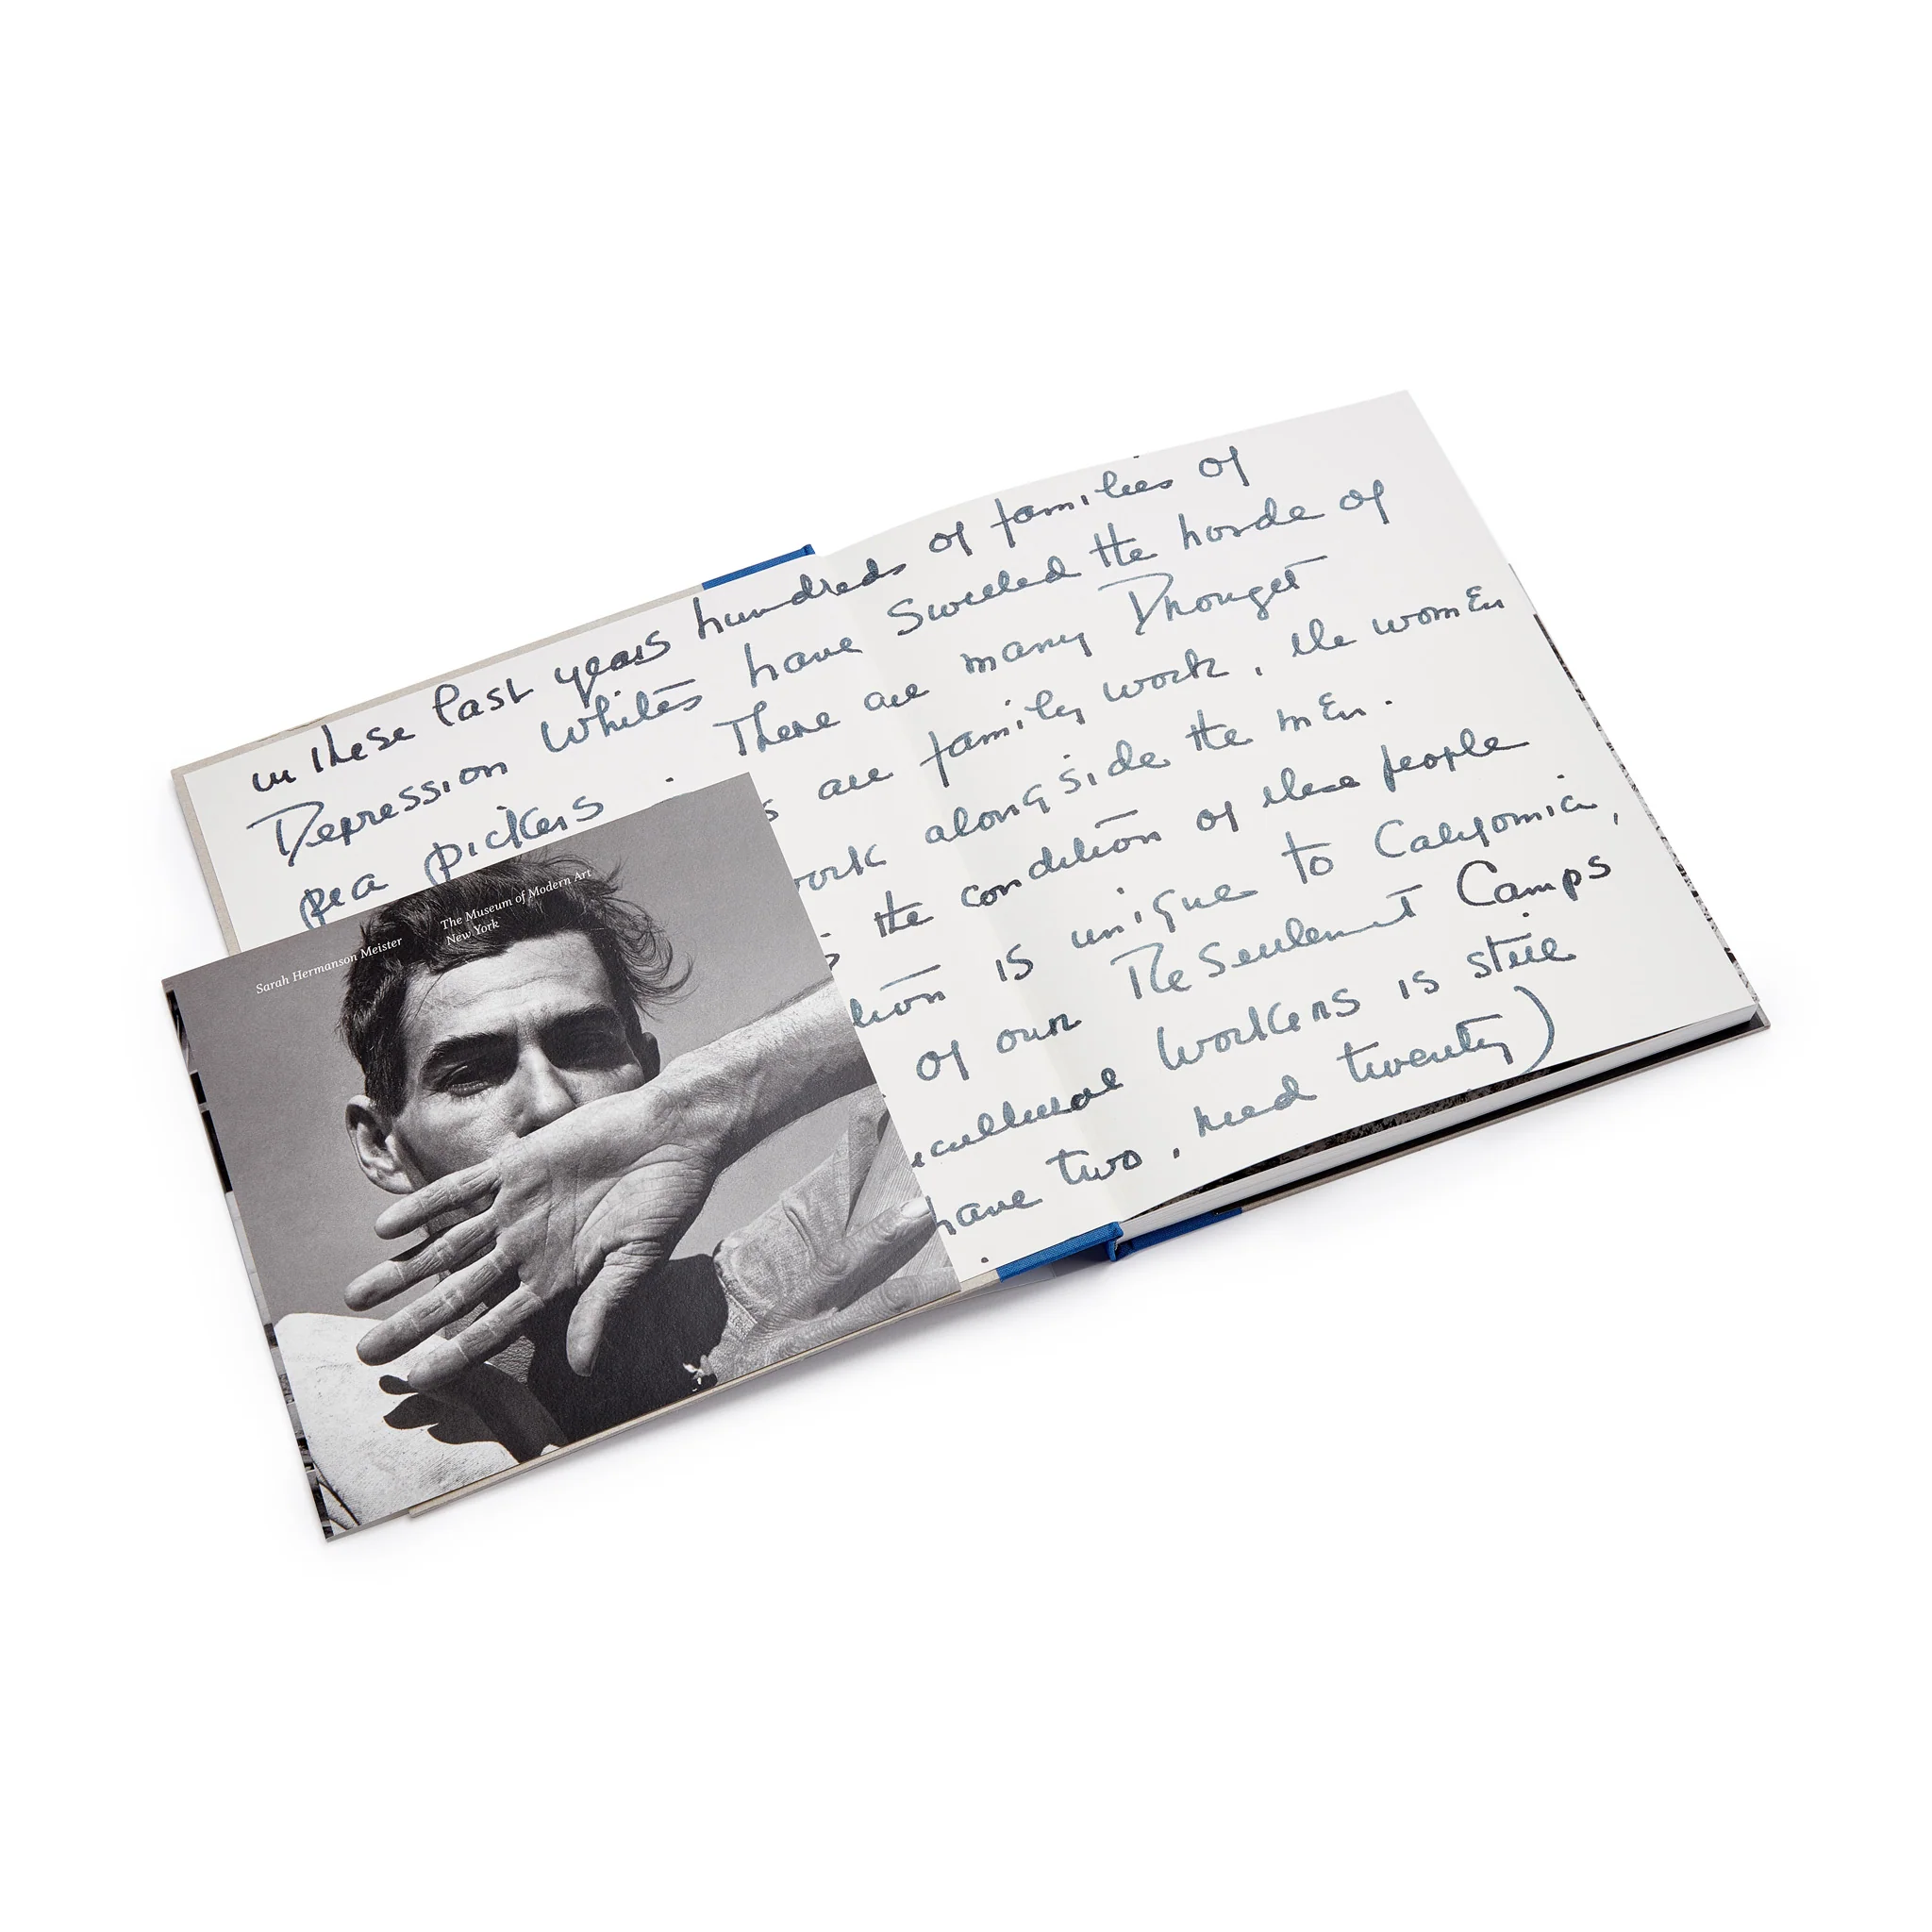 in these last years hundreds of families of
Depression Whites have swelled the horde of
pea pickers. There are many Drought
s are family work, the women
work alongside the men.
the condition of these people
ition is unique to California,
of our Resettlement Camps
cultural workers is still
have two, need twenty)
Sarah Hermanson Meister
The Museum of Modern Art
New York